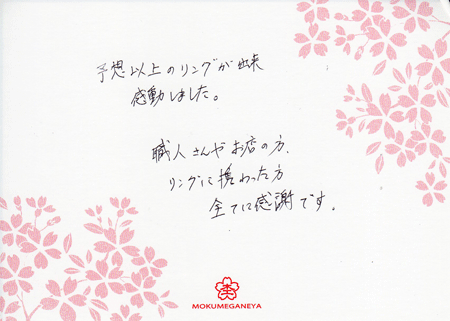 予想以上のリングが出来
感動しました。
職人さんやお店の方、
リングに携わった方
全てに感謝です。
MOKUMEGANEYA